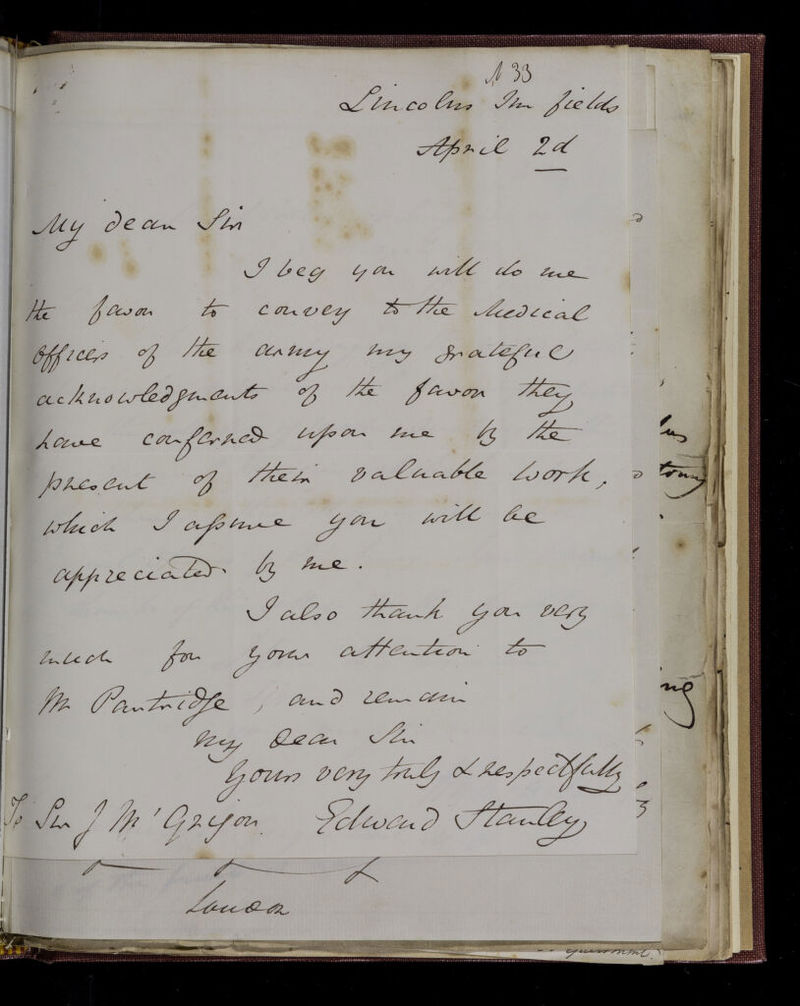 N 33
Lincolns Inn fields
April 2d
My dear Sir
I beg you will do me
the favor to convey to the Medical
Officers of the army my grateful
acknowledgments of the favor they
have conferred upon me by the
present of their valuable work,
which I assure you will be
appreciated by me.
I also thank you very
much for your attention to
Mr Partridge, and remain
my dear Sir
Yours very truly & respectfully
To Sir J Mc'Grigor Edward Stanley
London